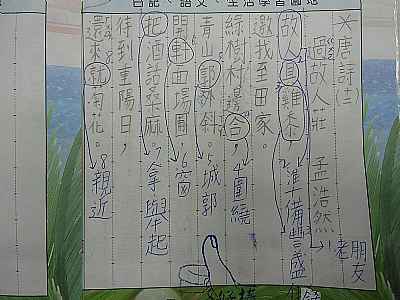 日記、語文、生活學習園地
唐詩(十二)
過故人莊 孟浩然
故人具雞黍,1老朋友 準備豐盛
邀我至田家。
綠樹村邊合,4圍繞
青山郭外斜。5城郭
開軒面場圃,6窗
把酒話桑麻。7拿 舉起
待到重陽日,
還來就菊花。8親近